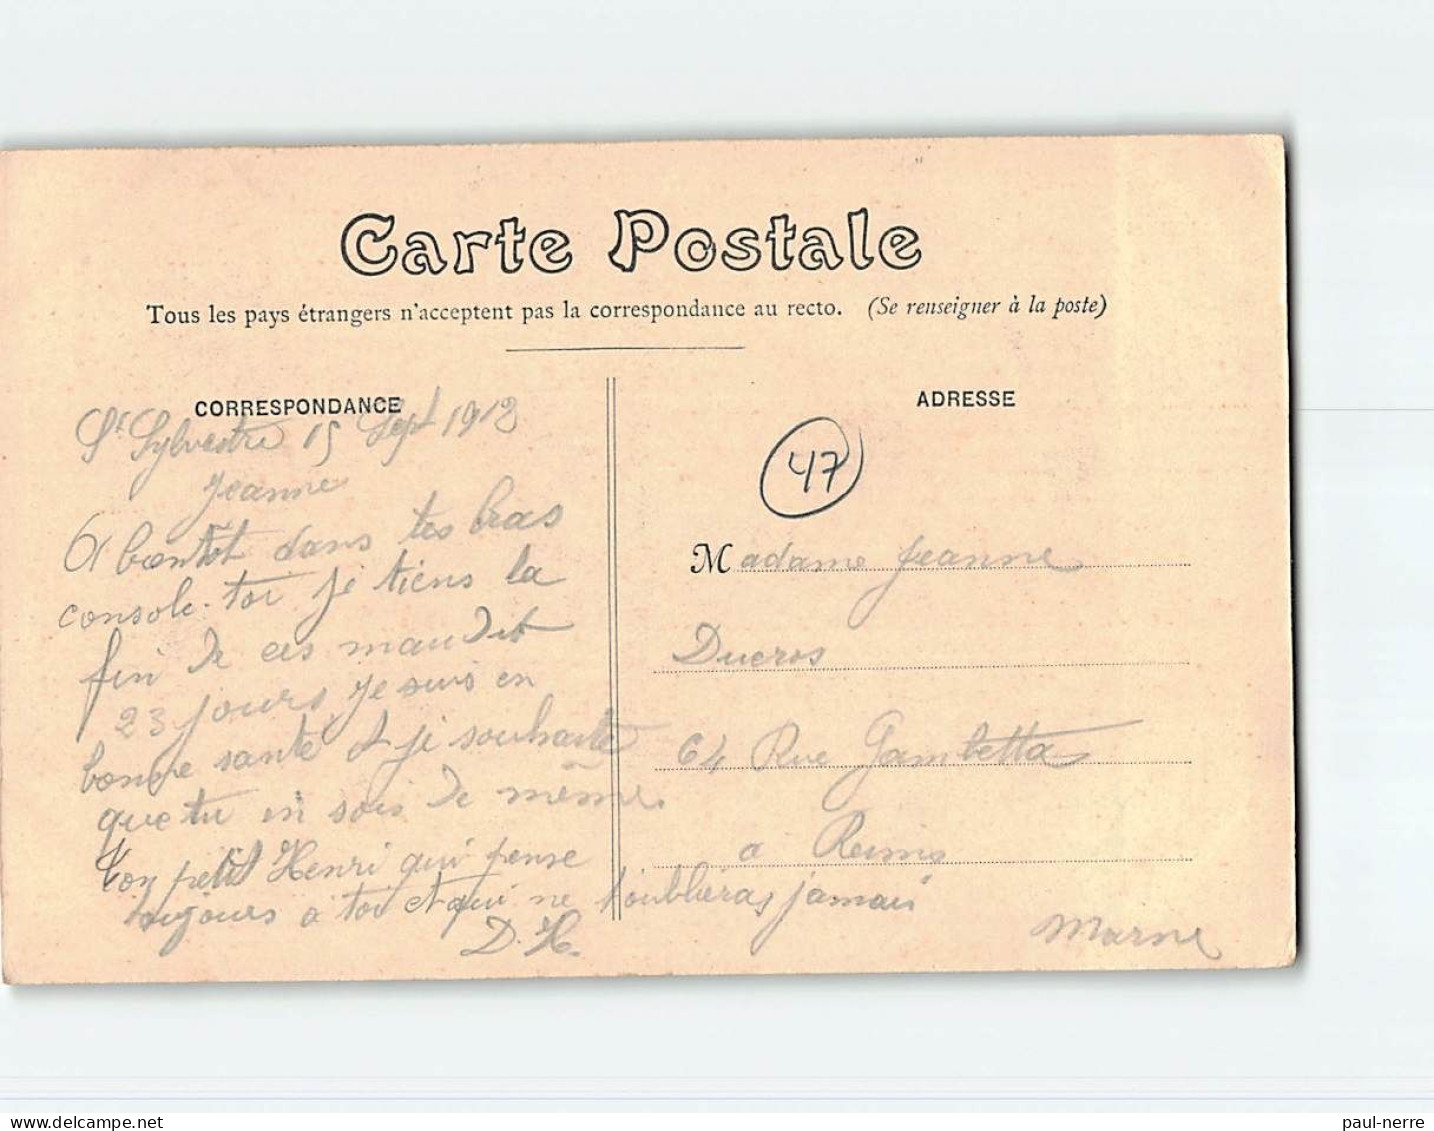 Carte Postale
Tous les pays étrangers n'acceptent pas la correspondance au recto. (Se renseigner à la poste)
CORRESPONDANCE
St Sylvestre 15 Sept 1912
Jeanne
A bientot dans tes bras
console-toi je tiens la
fin de ces maudit
23 jours je suis en
bonne santé et je souhaite
que tu en sois de meme.
Ton petit Henri qui pense
toujours a toi et qui ne t'oublieras jamais
D. H.
ADRESSE
47
Madame Jeanne
Ducros
64 Rue Gambetta
a Reims
Marne
paul-nerre